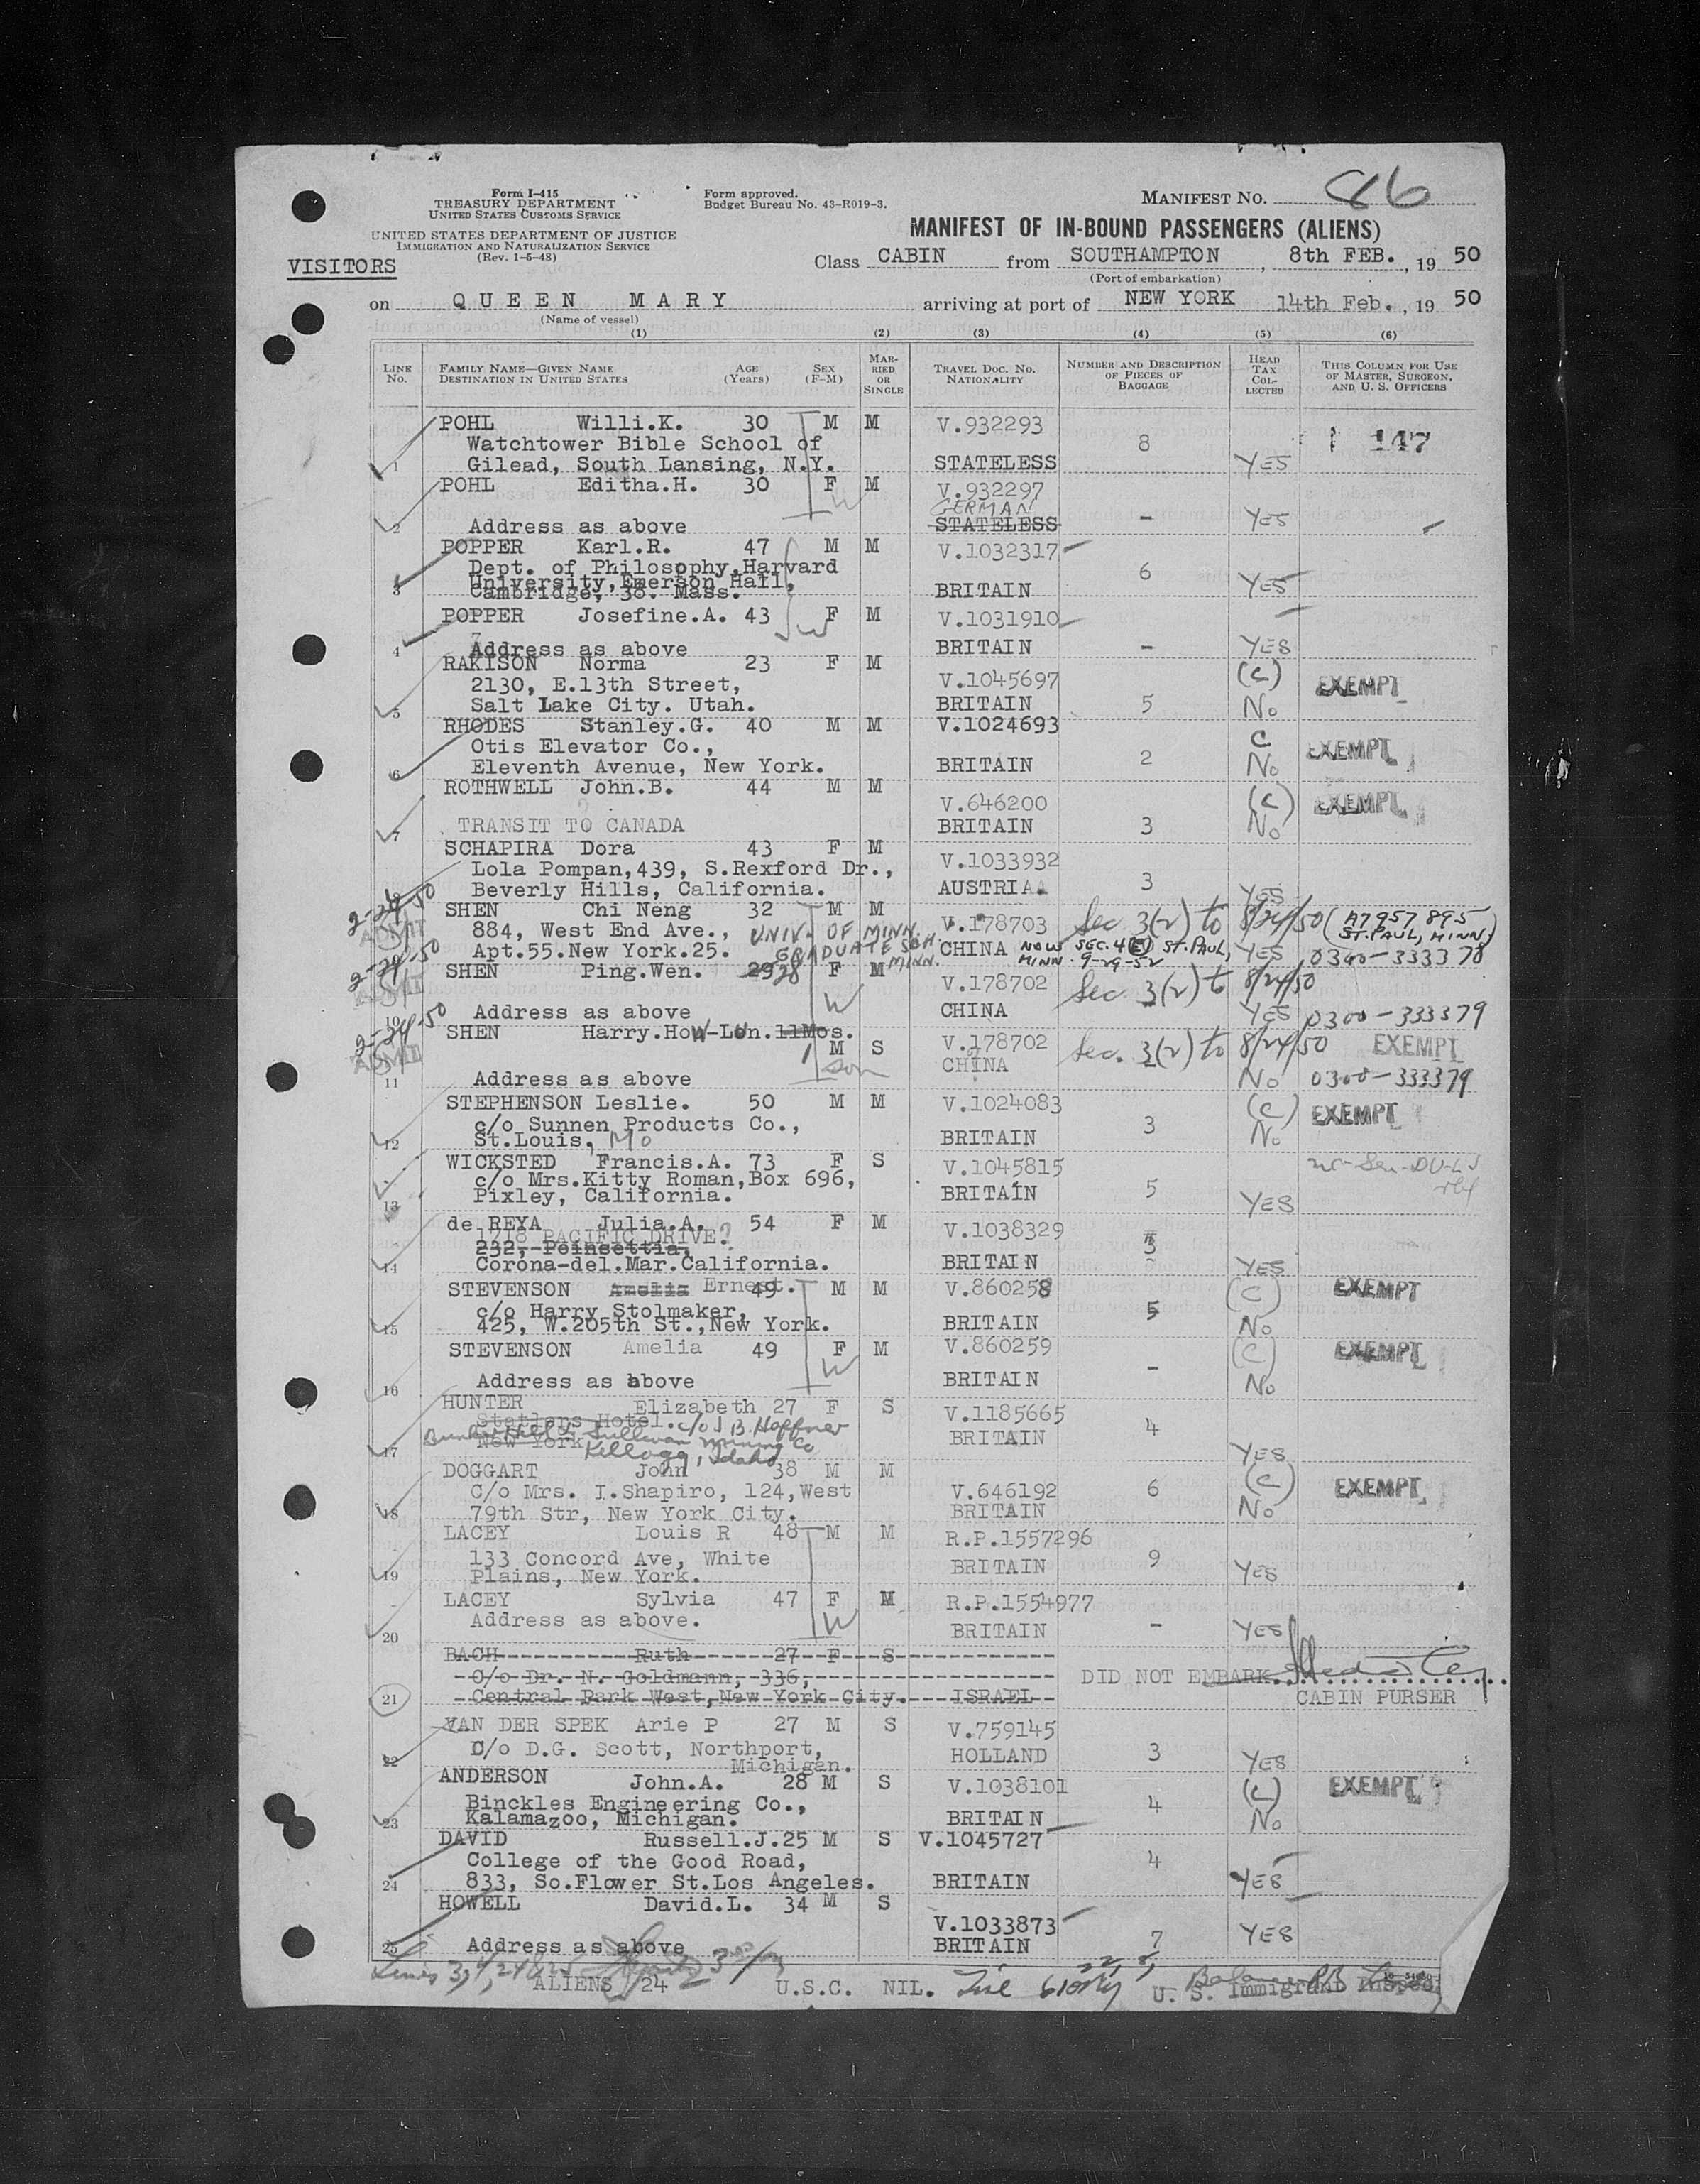 Form I-415
TREASURY DEPARTMENT
UNITED STATES CUSTOMS SERVICE
UNITED STATES DEPARTMENT OF JUSTICE
IMMIGRATION AND NATURALIZATION SERVICE
(Rev. 1-5-48)
Form approved.
Budget Bureau No. 43-R019-3.
MANIFEST NO. 86
MANIFEST OF IN-BOUND PASSENGERS (ALIENS)
VISITORS
Class CABIN from SOUTHAMPTON, 8th FEB., 19 50
(Port of embarkation)
on QUEEN MARY arriving at port of NEW YORK 14th Feb., 19 50
(Name of vessel)
(1) (2) (3) (4) (5) (6)
LINE No. FAMILY NAME—GIVEN NAME DESTINATION IN UNITED STATES AGE (Years) SEX (F-M) MARRIED OR SINGLE TRAVEL DOC. NO. NATIONALITY NUMBER AND DESCRIPTION OF PIECES OF BAGGAGE HEAD TAX COLLECTED THIS COLUMN FOR USE OF MASTER, SURGEON, AND U. S. OFFICERS
POHL Willi.K. 30 M M V.932293
Watchtower Bible School of 8 147
1 Gilead, South Lansing, N.Y. STATELESS YES
POHL Editha.H. 30 F M V.932297
W GERMAN
2 Address as above STATELESS - YES
POPPER Karl.R. 47 M M V.1032317
Dept. of Philosophy,Harvard 6
University,Emerson Hall,
3 Cambridge, 38. Mass. BRITAIN YES
POPPER Josefine.A. 43 F M V.1031910
W
4 Address as above BRITAIN - YES
RAKISON Norma 23 F M (C)
2130, E.13th Street, V.1045697 EXEMPT
5 Salt Lake City. Utah. BRITAIN 5 No
RHODES Stanley.G. 40 M M V.1024693
Otis Elevator Co., C EXEMPT
6 Eleventh Avenue, New York. BRITAIN 2 No
ROTHWELL John.B. 44 M M
V.646200 (C) EXEMPT
7 TRANSIT TO CANADA BRITAIN 3 No
SCHAPIRA Dora 43 F M
Lola Pompan,439, S.Rexford Dr., V.1033932
Beverly Hills, California. AUSTRIA. 3 YES
2-24-50 SHEN Chi Neng 32 M M
ADMIT 884, West End Ave., UNIV. OF MINN. V.178703 Sec 3(2) to 8/24/50 (A7957895 ST. PAUL, MINN)
Apt.55.New York.25. GRADUATE SCH. MINN. CHINA NOW SEC. 4(E) ST. PAUL, MINN. 9-29-52 YES 0300-333378
2-24-50 SHEN Ping.Wen. 29 28 F M
ADMIT W V.178702 Sec 3(2) to 8/24/50
10 Address as above CHINA YES 0300-333379
2-24-50 SHEN Harry.How-Lun. 11Mos.
ADMIT 1 M S V.178702 Sec. 3(2) to 8/24/50 EXEMPT
son CHINA
11 Address as above No 0300-333379
STEPHENSON Leslie. 50 M M V.1024083 (C) EXEMPT
c/o Sunnen Products Co., 3
12 St.Louis, Mo BRITAIN No
WICKSTED Francis.A. 73 F S V.1045815
c/o Mrs.Kitty Roman,Box 696, 5
13 Pixley, California. BRITAIN YES
de REYA Julia.A. 54 F M V.1038329
1718 PACIFIC DRIVE? 3
232, Poinsettia,
14 Corona-del.Mar.California. BRITAIN YES
STEVENSON Amelia Ernest. 49 M M V.860258 (C) EXEMPT
c/o Harry Stolmaker, 5
15 425, W.205th St.,New York. BRITAIN No
STEVENSON Amelia 49 F M V.860259 (C) EXEMPT
W -
16 Address as above BRITAIN No
HUNTER Elizabeth 27 F S V.1185665
Statlers Hotel. c/o J B. Heffner 4
Bunker Hill & Sullivan Mining Co BRITAIN
17 New York Kellogg, Idaho YES
DOGGART John 38 M M (C)
C/o Mrs. I.Shapiro, 124,West V.646192 6 EXEMPT
18 79th Str, New York City. BRITAIN No
LACEY Louis R 48 M M R.P.1557296
133 Concord Ave, White 9
19 Plains, New York. BRITAIN YES
LACEY Sylvia 47 F M R.P.1554977
Address as above. W
20 BRITAIN - YES
BACH Ruth 27 F S
C/o Dr. N. Goldmann, 336, DID NOT EMBARK
21 Central Park West,New York City. ISRAEL CABIN PURSER
VAN DER SPEK Arie P 27 M S V.759145
22 C/o D.G. Scott, Northport, HOLLAND 3 YES
Michigan.
ANDERSON John.A. 28 M S V.1038101 (C) EXEMPT
Binckles Engineering Co., 4
23 Kalamazoo, Michigan. BRITAIN No
DAVID Russell.J. 25 M S V.1045727
College of the Good Road, 4
24 833, So.Flower St.Los Angeles. BRITAIN YES
HOWELL David.L. 34 M S
V.1033873
25 Address as above BRITAIN 7 YES
Lines 3, 4, 24 & 25
ALIENS 24 U.S.C. NIL. U. S. Immigrant Inspec